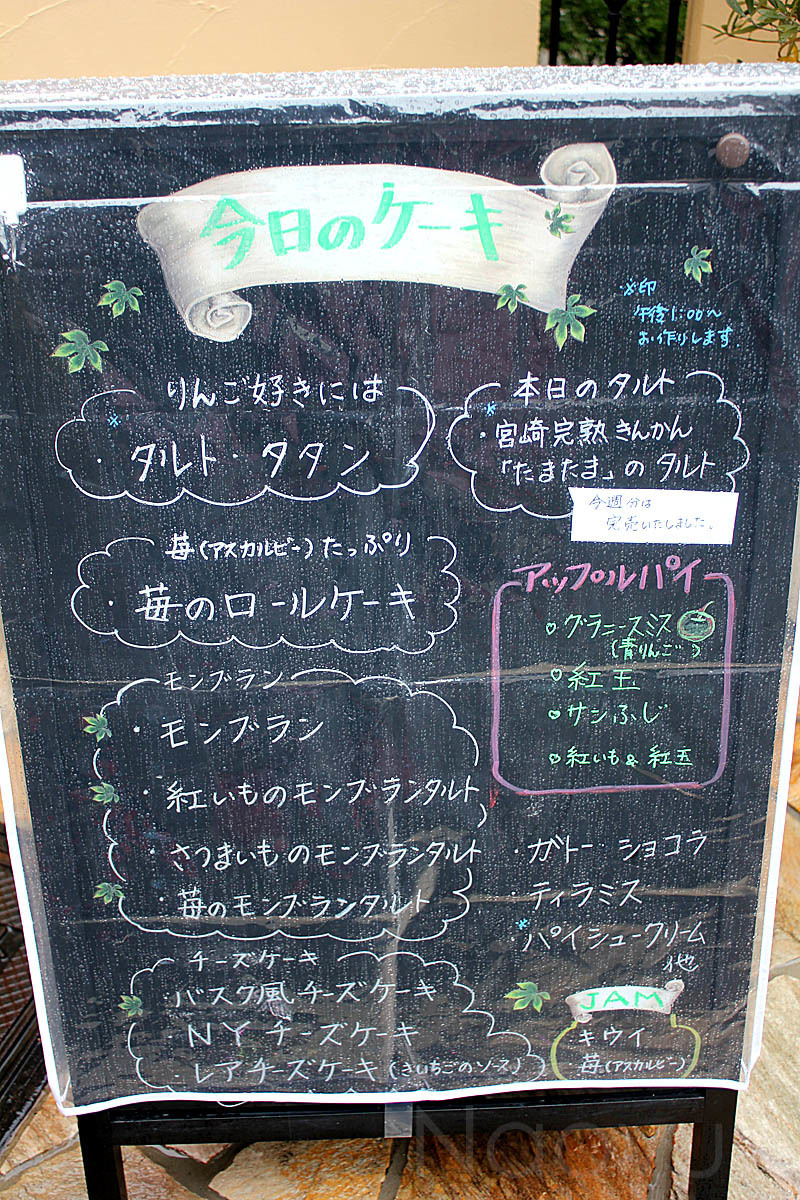 今日のケーキ
※印
午後1:00〜
お作りします
りんご好きには
※
・タルト・タタン
本日のタルト
※
・宮崎完熟きんかん
「たまたま」のタルト
今週分は
完売いたしました。
苺(アスカルビー)たっぷり
・苺のロールケーキ
アップルパイ
グラニースミス
(青りんご)
紅玉
サンふじ
紅いも&紅玉
モンブラン
・モンブラン
・紅いものモンブランタルト
・さつまいものモンブランタルト
・苺のモンブランタルト
・ガトー・ショコラ
・ティラミス
※
・パイシュークリーム
他
チーズケーキ
・バスク風チーズケーキ
・NYチーズケーキ
・レアチーズケーキ(きいちごのソース)
JAM
キウイ
苺(アスカルビー)